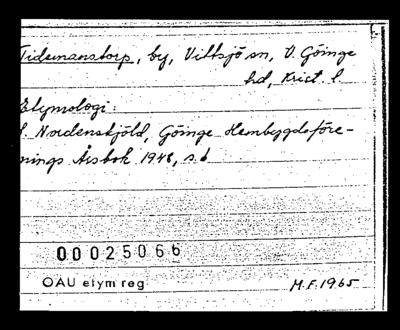 Tidemanstorp, by, Vittsjö sn, V. Göinge
hd, Krist. l.
Etymologi:
Nordenskjöld, Göinge Hembygdsföre-
nings Årsbok 1948, s. 6
00025066
OAU etym reg
M.F. 1965